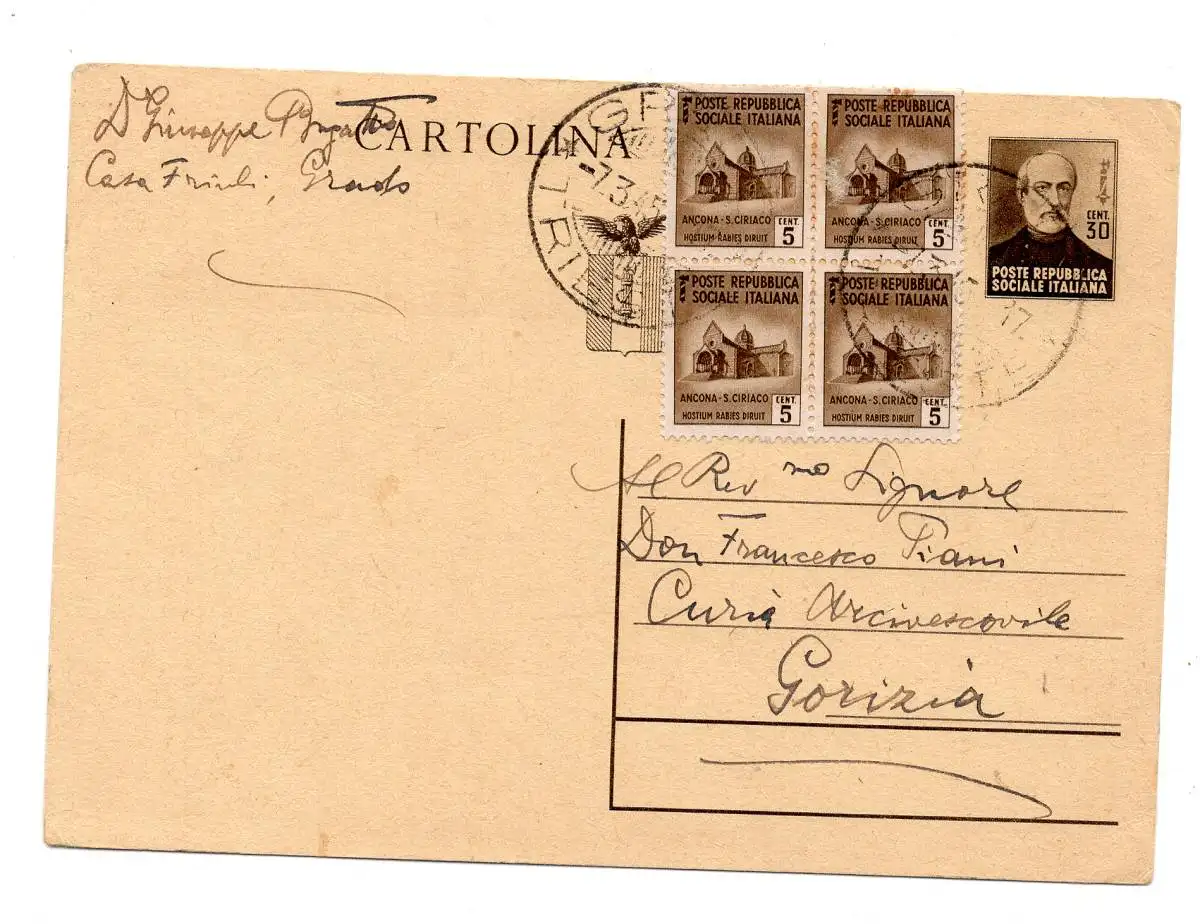 D Giuseppe
Casa Friuli, Grado
CARTOLINA
7.3.45
POSTE REPUBBLICA
SOCIALE ITALIANA
ANCONA - S. CIRIACO
HOSTIUM RABIES DIRUIT
CENT.
5
POSTE REPUBBLICA
SOCIALE ITALIANA
ANCONA - S. CIRIACO
HOSTIUM RABIES DIRUIT
CENT.
5
POSTE REPUBBLICA
SOCIALE ITALIANA
ANCONA - S. CIRIACO
HOSTIUM RABIES DIRUIT
CENT.
5
POSTE REPUBBLICA
SOCIALE ITALIANA
ANCONA - S. CIRIACO
HOSTIUM RABIES DIRUIT
CENT.
5
CENT.
30
POSTE REPUBBLICA
SOCIALE ITALIANA
17
Al Rev mo Signore
Don Francesco Piani
Curia Arcivescovile
Gorizia